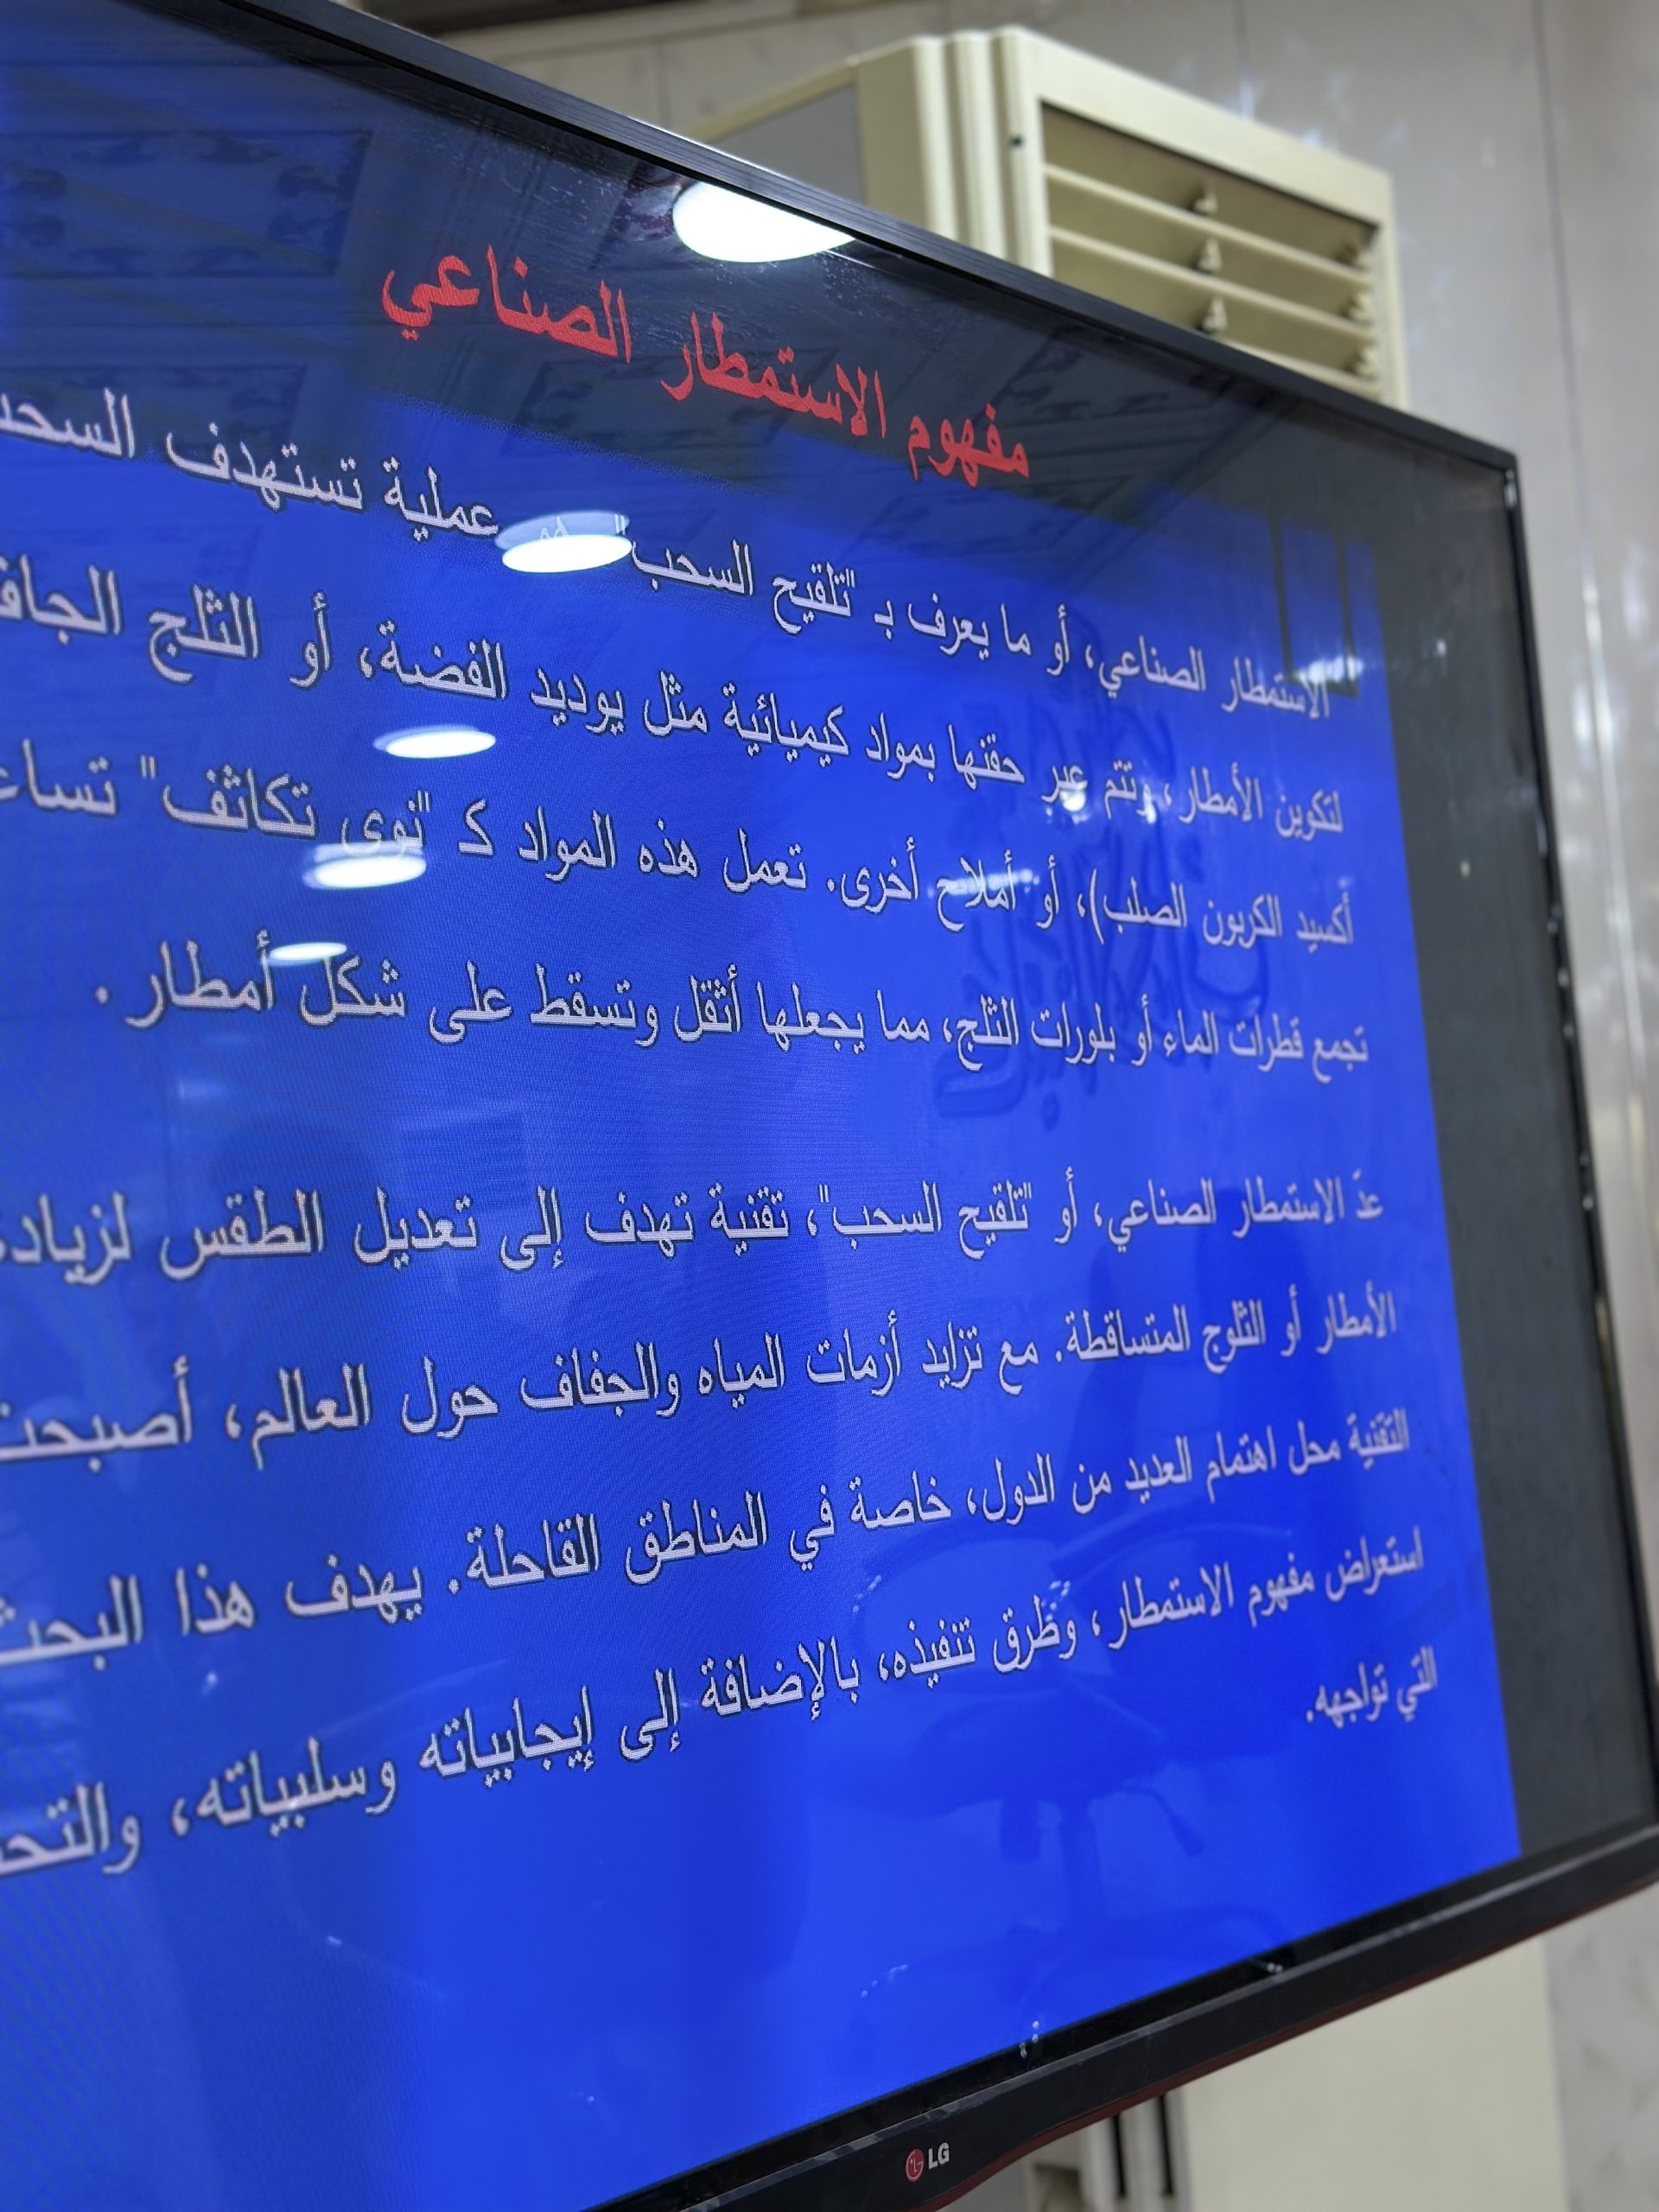 مفهوم الاستمطار الصناعي
الاستمطار الصناعي، أو ما يعرف بـ "تلقيح السحب" هي عملية تستهدف
لتكوين الأمطار، وتتم عبر حقنها بمواد كيميائية مثل يوديد الفضة، أو الثلج
أكسيد الكربون الصلب)، أو أملاح أخرى. تعمل هذه المواد كـ "نوى تكاثف"
تجمع قطرات الماء أو بلورات الثلج، مما يجعلها أثقل وتسقط على شكل أمطار.
عدّ الاستمطار الصناعي، أو "تلقيح السحب"، تقنية تهدف إلى تعديل الطقس
الأمطار أو الثلوج المتساقطة. مع تزايد أزمات المياه والجفاف حول العالم،
التقنية محل اهتمام العديد من الدول، خاصة في المناطق القاحلة. يهدف هذا
استعراض مفهوم الاستمطار، وطُرق تنفيذه، بالإضافة إلى إيجابياته وسلبياته،
التي تواجهه.
LG